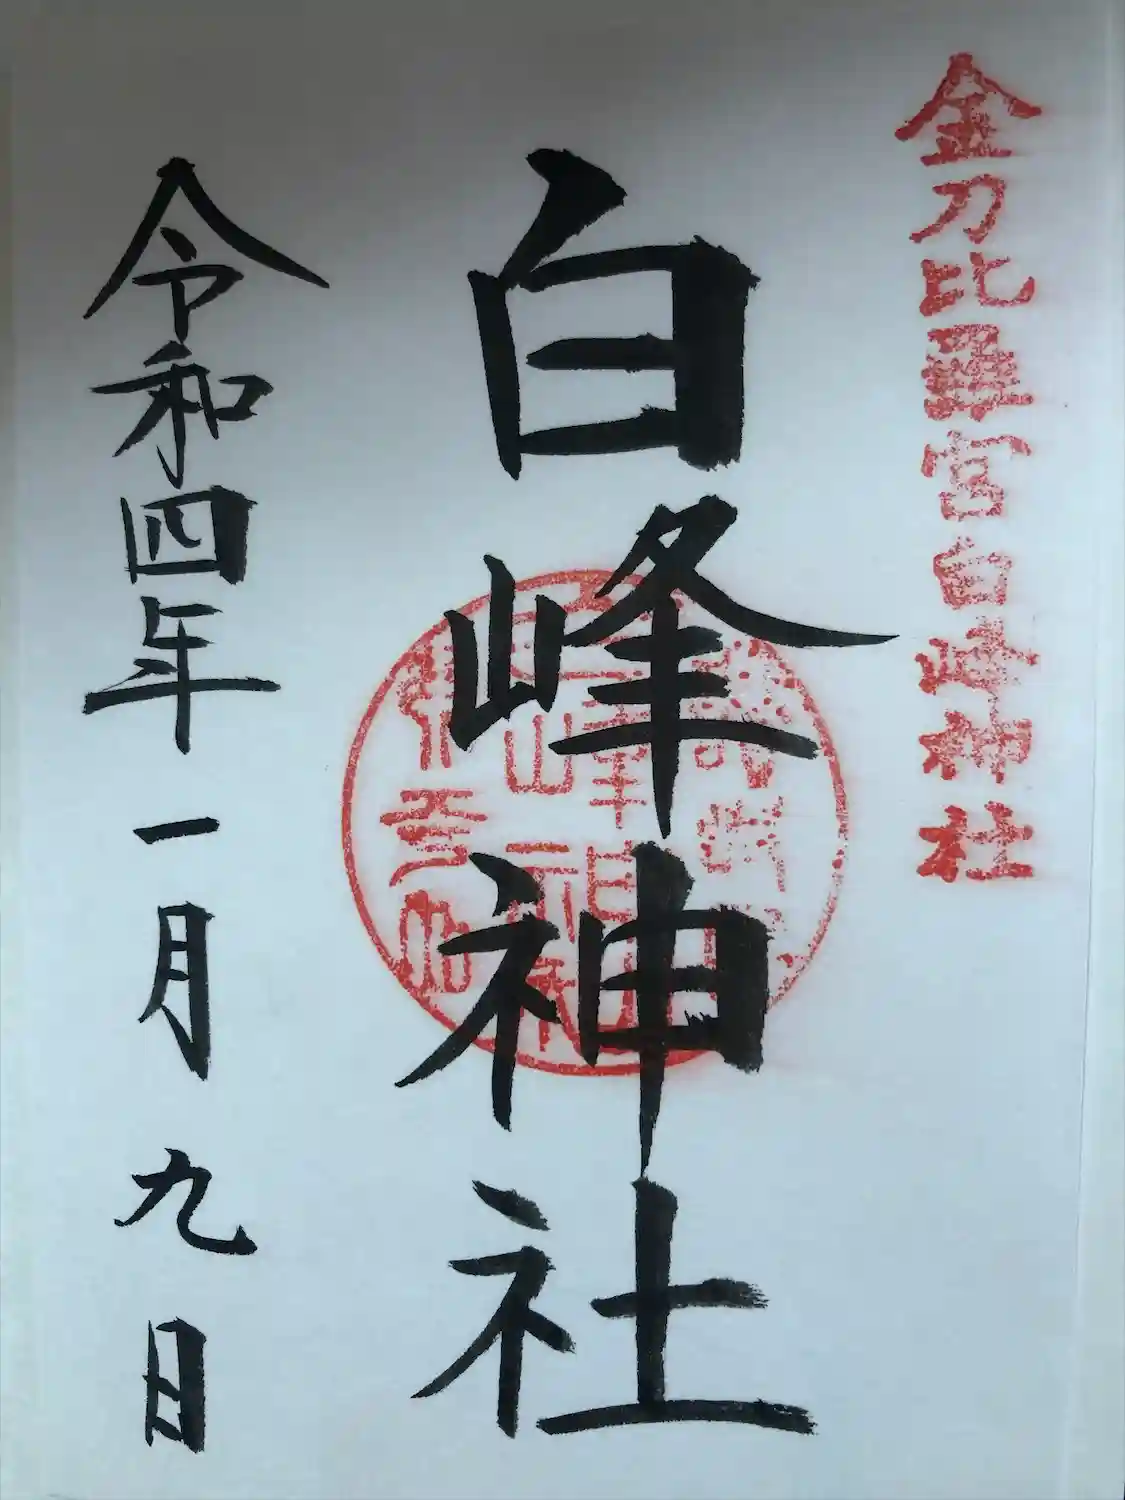 金刀比羅宮白峰神社
白峰神社
令和四年一月九日